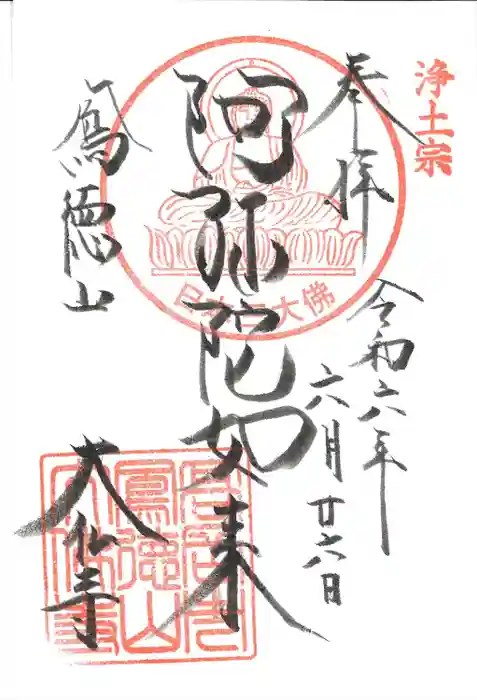 浄土宗
奉拝
令和六年
六月廿六日
阿弥陀如来
日本三大佛
鳳徳山
大仏寺
鳳徳山
大佛寺